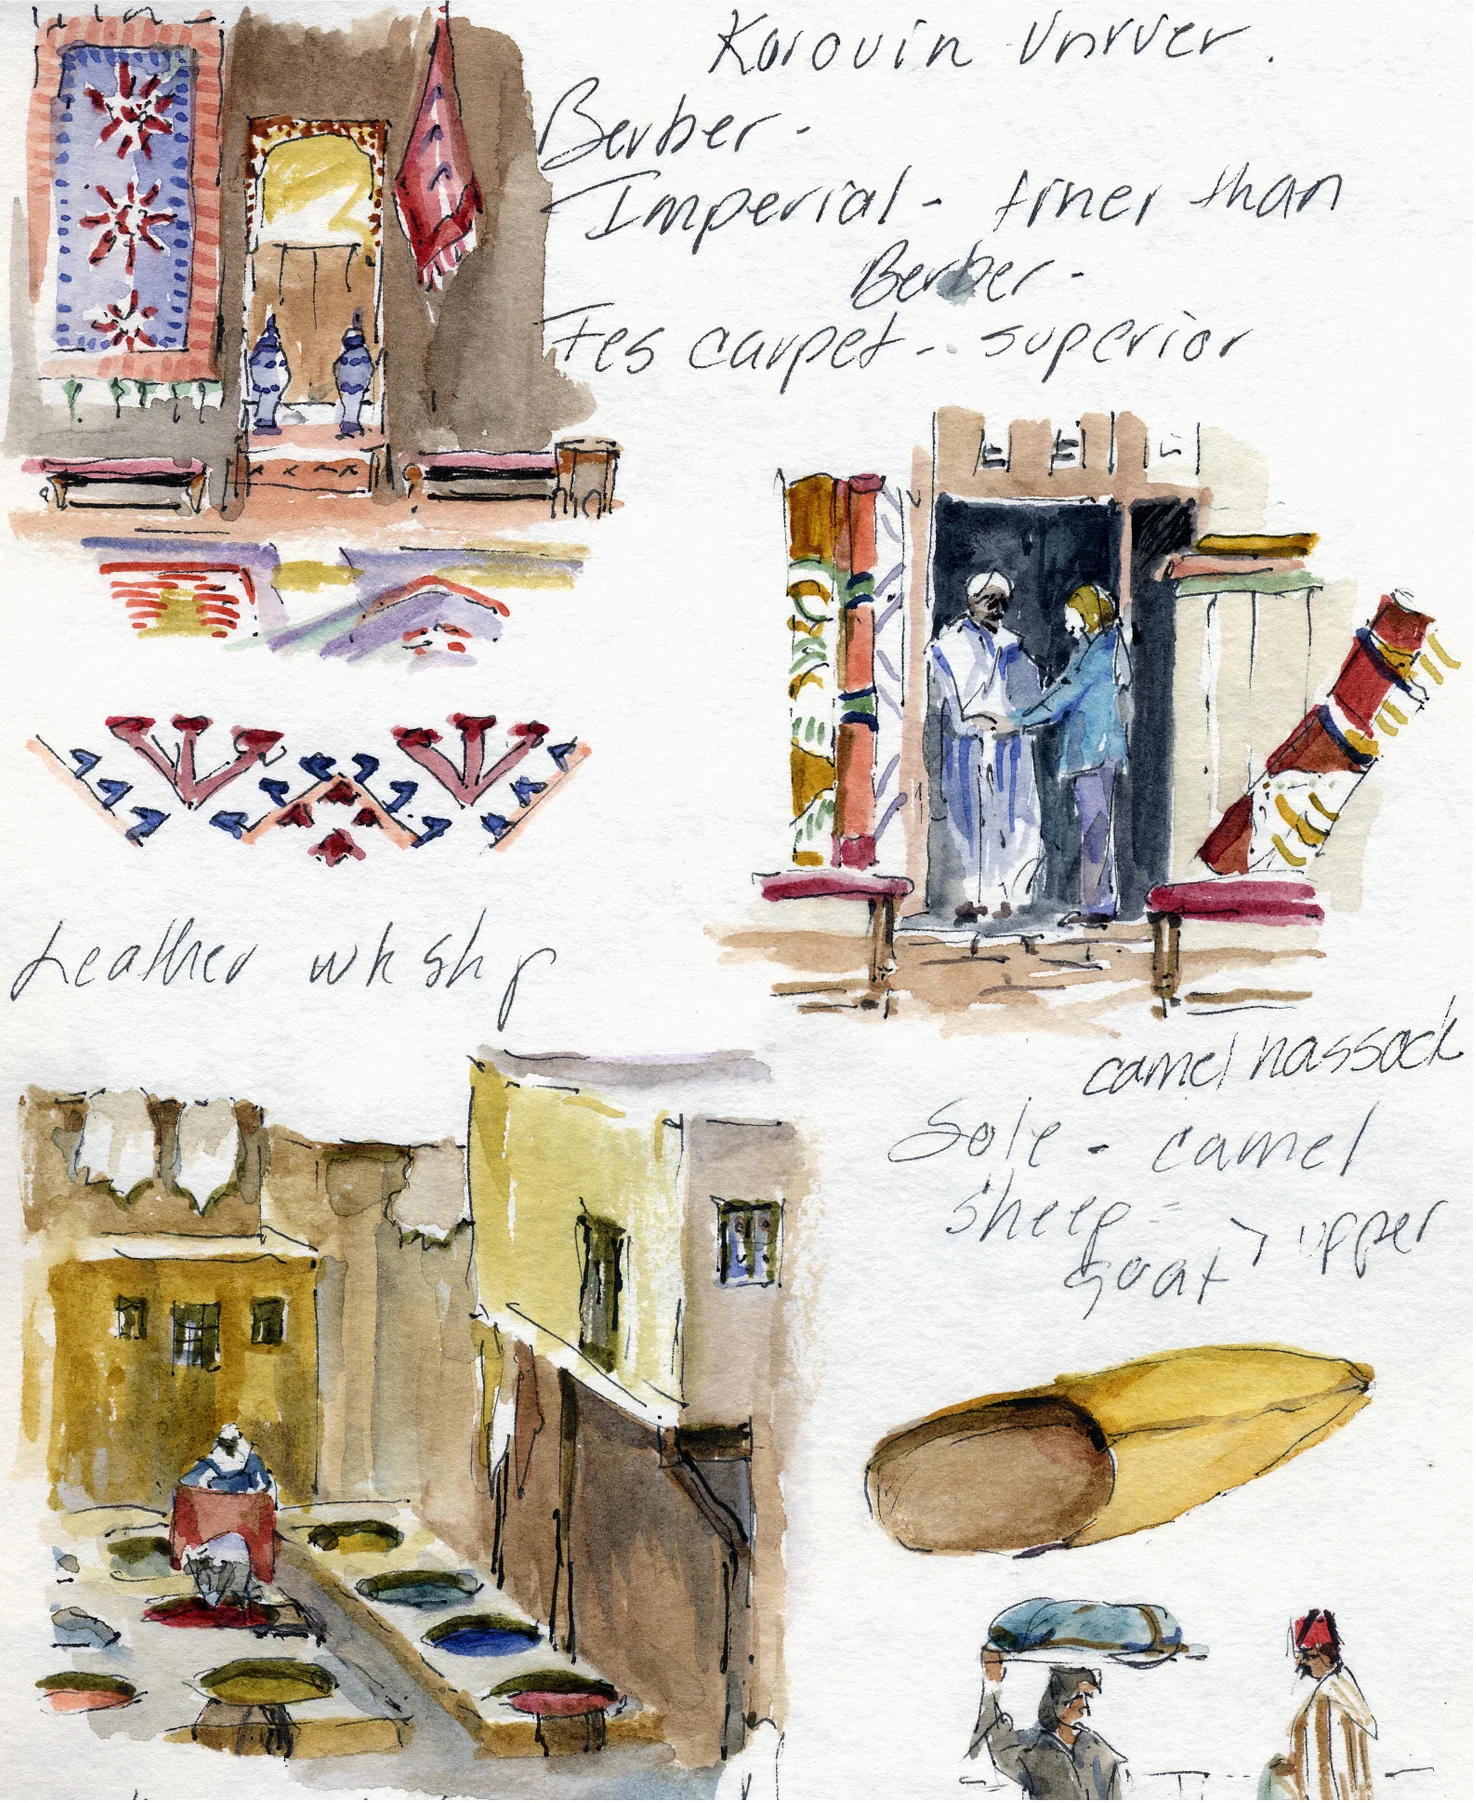 Korouin Univer.
Berber -
Imperial - finer than
Berber -
Fes carpet - superior
Leather wkshp
camel hassock
Sole - camel
sheep -
goat > upper